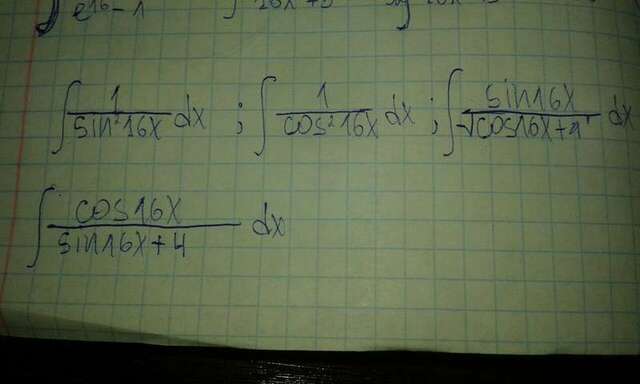 e^16 - 1
∫ 1/sin²16x dx ; ∫ 1/cos²16x dx ; ∫ sin16x/√(cos16x+4) dx
∫ cos16x/(sin16x+4) dx